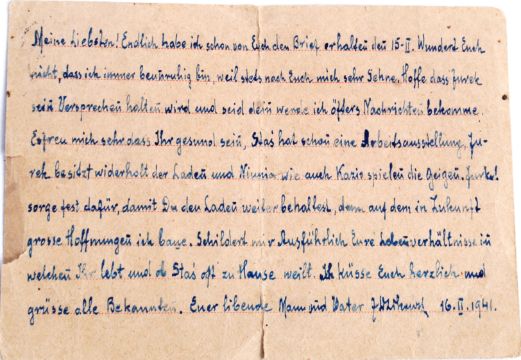 Meine Liebsten! Endlich habe ich schon von Euch den Brief erhalten den 15-II. Wundert Euch
nicht, dass ich immer beunruhig bin, weil stets nach Euch mich sehr Sehne. Hoffe dass Jurek
sein Versprechen halten wird und seid dem werde ich öfters Nachrichten bekomme.
Esfreu mich sehr dass Ihr gesund sein, Staś hat schon eine Arbeitsausstellung, Ju-
rek besitzt widerholt der Laden und Niunia wie auch Kazio spielen die Geigen. Jurku!
sorge fest dafür, damit Du den Laden weiter behaltest, denn auf dem in Zukunft
grosse Hoffnungen ich baue. Schildert mir Ausführlich Eure Lebenverhältnisse in
welchen Ihr lebt und ob Staś oft zu Hause weilt. Ich küsse Euch herzlich und
grüsse alle Bekannten. Euer libende Mann und Vater 16.II.1941.